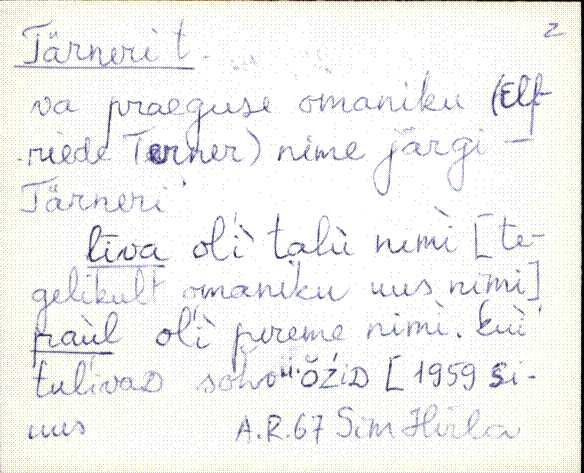 2
Tärneri t.
va praeguse omaniku (Elf-
riede Terner) nime järgi –
Tärneri
līva ol̀ì talù nemì [te-
gelikult omaniku uus nimi]
paùl ol̀ì pereme nimì. kuì
tulìvaD
[1959 si-
nus A.R.67 Sim Hirla